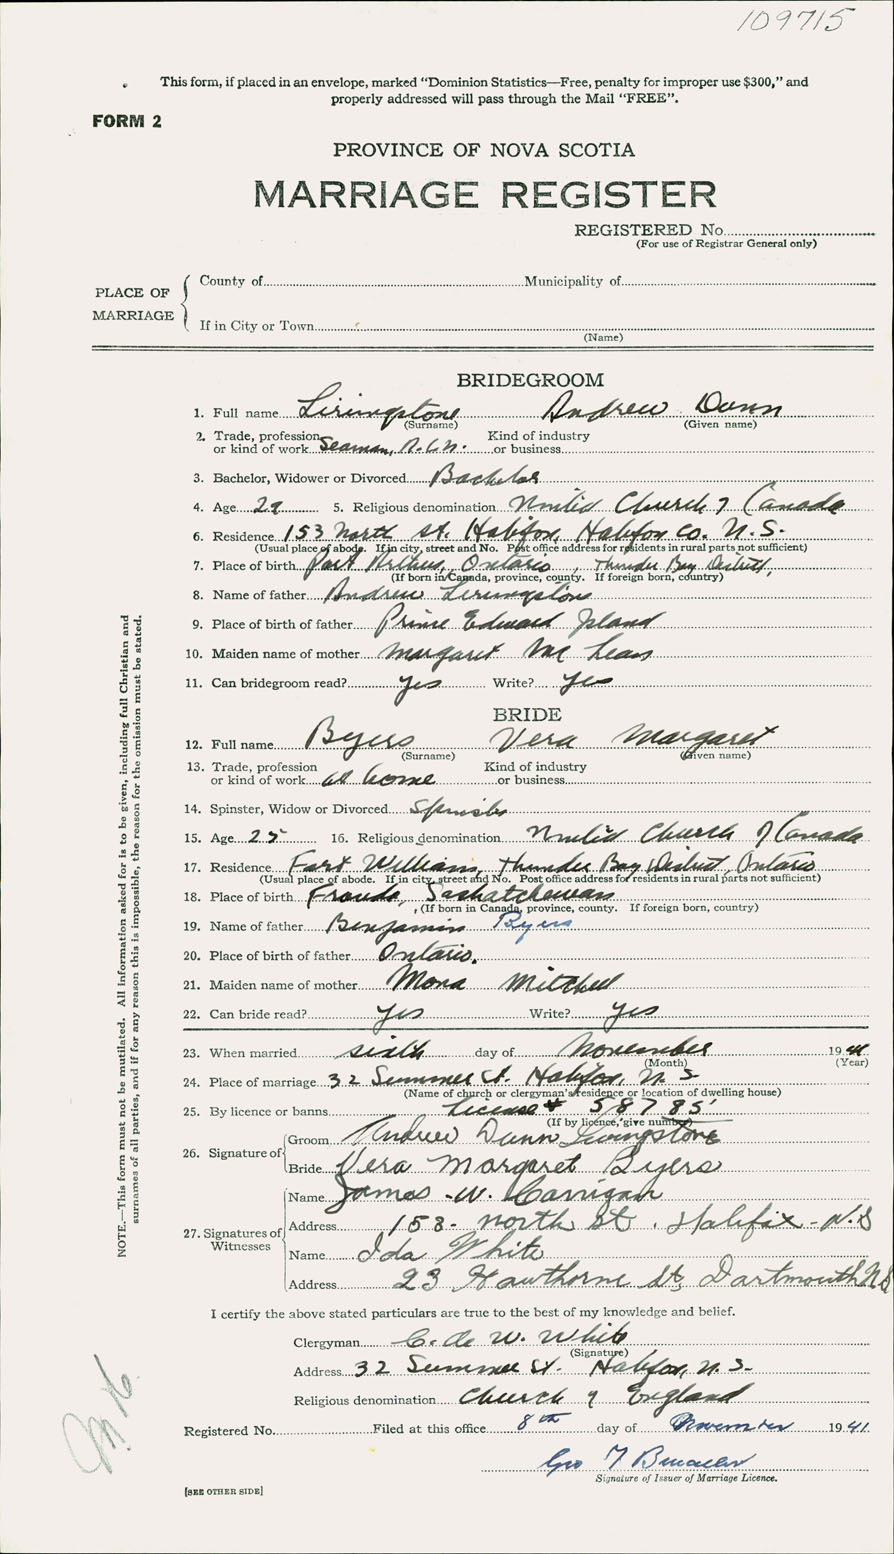 109715
This form, if placed in an envelope, marked “Dominion Statistics—Free, penalty for improper use $300,” and
properly addressed will pass through the Mail “FREE”.
FORM 2
PROVINCE OF NOVA SCOTIA
MARRIAGE REGISTER
REGISTERED No.
(For use of Registrar General only)
PLACE OF MARRIAGE
County of Municipality of
If in City or Town
(Name)
BRIDEGROOM
1. Full name Livingstone Andrew Dunn
(Surname) (Given name)
2. Trade, profession or kind of work Seaman, R.C.N. Kind of industry or business
3. Bachelor, Widower or Divorced Bachelor
4. Age 29 5. Religious denomination United Church of Canada
6. Residence 153 North St. Halifax, Halifax Co. N.S.
(Usual place of abode. If in city, street and No. Post office address for residents in rural parts not sufficient)
7. Place of birth Port Arthur, Ontario, Thunder Bay District,
(If born in Canada, province, county. If foreign born, country)
8. Name of father Andrew Livingstone
9. Place of birth of father Prince Edward Island
10. Maiden name of mother Margaret McLean
11. Can bridegroom read? Yes Write? Yes
BRIDE
12. Full name Byers Vera Margaret
(Surname) (Given name)
13. Trade, profession or kind of work at home Kind of industry or business
14. Spinster, Widow or Divorced Spinster
15. Age 25 16. Religious denomination United Church of Canada
17. Residence Fort William, Thunder Bay District, Ontario
(Usual place of abode. If in city, street and No. Post office address for residents in rural parts not sufficient)
18. Place of birth Froude, Saskatchewan
(If born in Canada, province, county. If foreign born, country)
19. Name of father Benjamin Byers
20. Place of birth of father Ontario.
21. Maiden name of mother Mona Mitchell
22. Can bride read? Yes Write? Yes
23. When married sixth day of November 1941
(Month) (Year)
24. Place of marriage 32 Summer St. Halifax, N.S
(Name of church or clergyman's residence or location of dwelling house)
25. By licence or banns License # 58785
(If by licence, give number)
26. Signature of
Groom Andrew Dunn Livingstone
Bride Vera Margaret Byers
27. Signatures of Witnesses
Name James W. Carrigan
Address 153 - North St. Halifax - N.S
Name Ida White
Address 23 Hawthorne St, Dartmouth N.S
I certify the above stated particulars are true to the best of my knowledge and belief.
Clergyman C. de W. White
(Signature)
Address 32 Summer St. Halifax, N.S.
Religious denomination Church of England
Registered No. Filed at this office 8th day of November 1941.
Geo
Signature of Issuer of Marriage Licence.
[SEE OTHER SIDE]
NOTE.—This form must not be mutilated. All information asked for is to be given, including full Christian and
surnames of all parties, and if for any reason this is impossible, the reason for the omission must be stated.